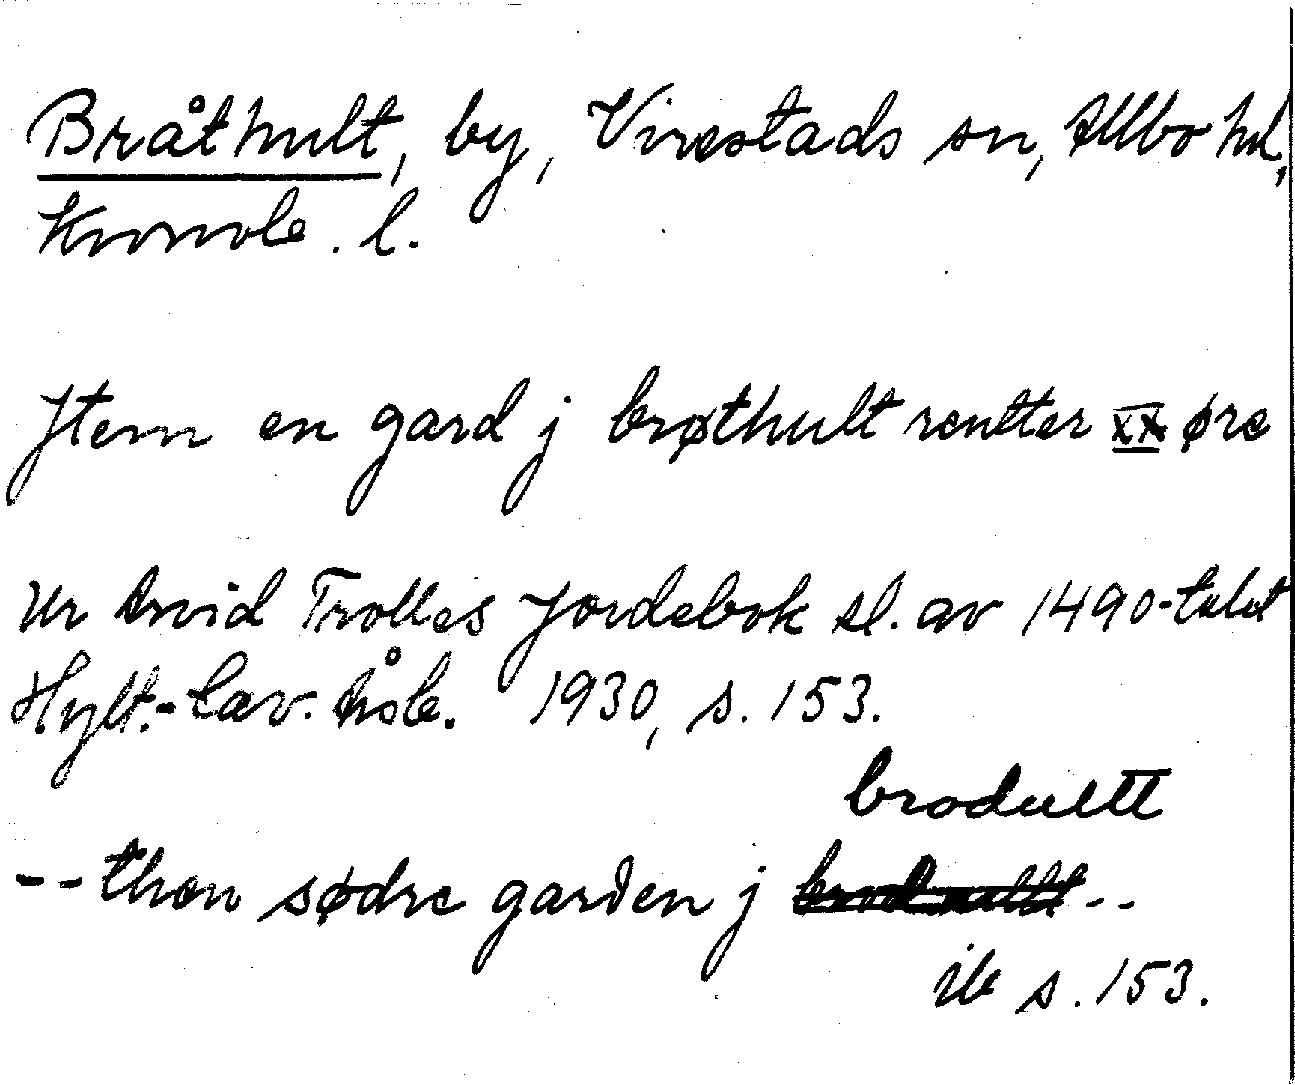 Bråthult, by, Virestads sn, Allbo hd,
Kronob. l.
Jtem en gard j brøthult rentter xx øre
Ur Arvid Trolles Jordebok sl. av 1490-talet
Hylt.-Cav. hsb. 1930, s. 153.
brodultt
-- then sødre garden j --
ib s. 153.